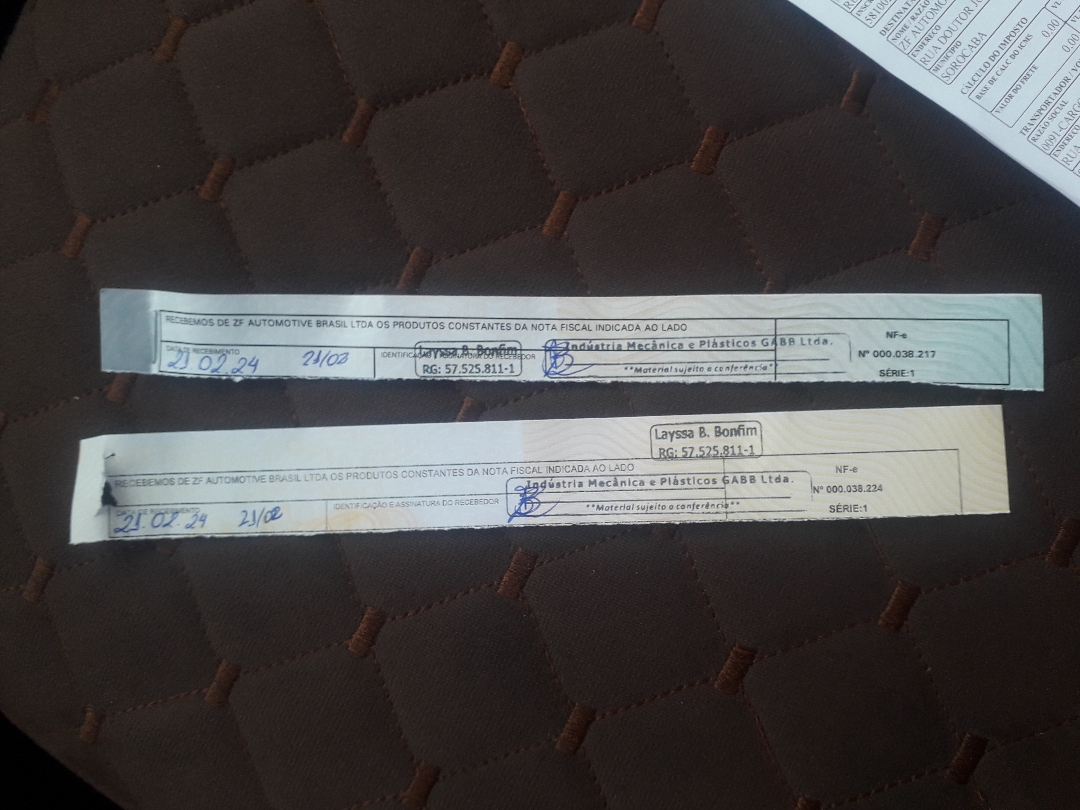 DESTINAT
NOME / RAZÃO
ZF AUTOMO
ENDEREÇO
RUA DOUTOR J
MUNICÍPIO
SOROCABA
CÁLCULO DO IMPOSTO
BASE DE CALC DO ICMS
0.00
VALOR DO FRETE
0.00
TRANSPORTADOR / VO
RAZÃO SOCIAL
0091-CARG
ENDEREÇO
RUA
RECEBEMOS DE ZF AUTOMOTIVE BRASIL LTDA OS PRODUTOS CONSTANTES DA NOTA FISCAL INDICADA AO LADO
NF-e
Nº 000.038.217
SÉRIE:1
DATA DE RECEBIMENTO
21 02 24 21/02
IDENTIFICAÇÃO E ASSINATURA DO RECEBEDOR
Layssa B. Bonfim
RG: 57.525.811-1
Indústria Mecânica e Plásticos GABB Ltda.
**Material sujeito a conferência**
Layssa B. Bonfim
RG: 57.525.811-1
RECEBEMOS DE ZF AUTOMOTIVE BRASIL LTDA OS PRODUTOS CONSTANTES DA NOTA FISCAL INDICADA AO LADO
NF-e
Nº 000.038.224
SÉRIE:1
DATA DE RECEBIMENTO
21.02.24 21/02
IDENTIFICAÇÃO E ASSINATURA DO RECEBEDOR
Indústria Mecânica e Plásticos GABB Ltda.
**Material sujeito a conferência**